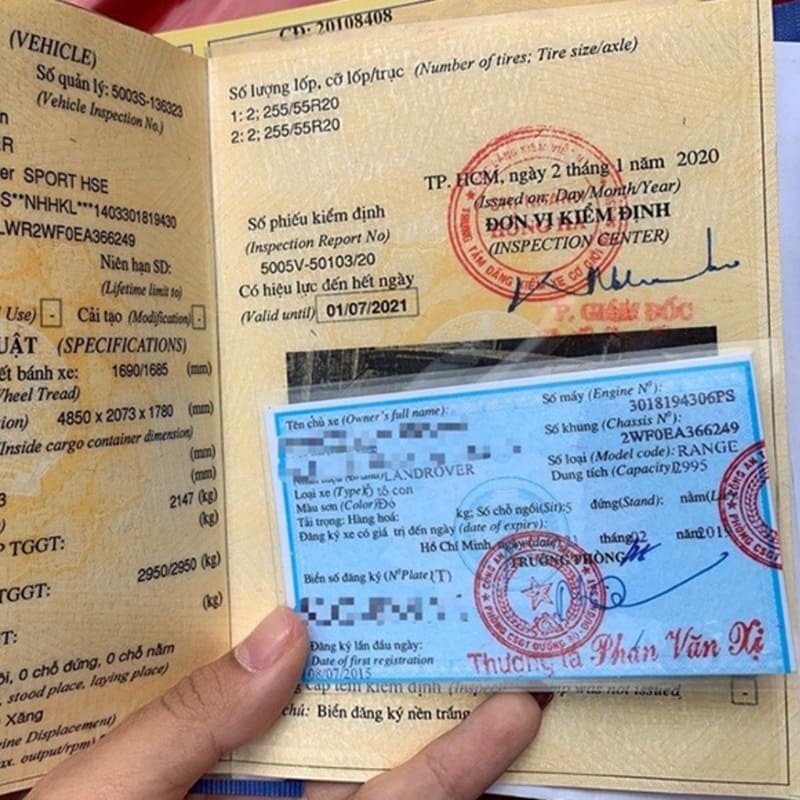 (VEHICLE)
Số quản lý: 5003S-136323
(Vehicle Inspection No.)
SPORT HSE
S**NHHKL***1403301819430
LWR2WF0EA366249
Niên hạn SD:
(Lifetime limit to)
Use) - Cải tạo (Modification) -
(SPECIFICATIONS)
bánh xe: 1690/1685 (mm)
4850 x 2073 x 1780 (mm)
Inside cargo container dimension)
(mm)
(mm)
2147 (kg)
(kg)
TGGT:
2950/2950 (kg)
TGGT:
(kg)
0 chỗ đứng, 0 chỗ nằm
stood place, laying place)
Xăng
Displacement)
output/rpm)
CD: 20108408
Số lượng lốp, cỡ lốp/trục (Number of tires; Tire size/axle)
1: 2; 255/55R20
2: 2; 255/55R20
TP. HCM, ngày 2 tháng 1 năm 2020
(Issued on: Day/Month/Year)
ĐƠN VỊ KIỂM ĐỊNH
(INSPECTION CENTER)
Số phiếu kiểm định
(Inspection Report No)
5005V-50103/20
Có hiệu lực đến hết ngày
(Valid until) 01/07/2021
P. GIÁM ĐỐC
Tên chủ xe (Owner's full name):
LANDROVER
Loại xe (Type) ô tô con
Màu sơn (Color) Đỏ
Tải trọng: Hàng hoá: kg; Số chỗ ngồi(Sit):5 đứng(Stand):
Đăng ký xe có giá trị đến ngày (date of expiry):
Số máy (Engine Nº):
3018194306PS
Số khung (Chassis Nº):
2WF0EA366249
Số loại (Model code): RANGE
Dung tích (Capacity) 2995
Hồ Chí Minh, ngày (date) tháng 02
TRƯỞNG PHÒNG
Biển số đăng ký (Nº Plate) (T)
Đăng ký lần đầu ngày:
Date of first registration
08/07/2015
Thượng tá Phan Văn Xị
cấp tem kiểm định was not issued -
chú: Biển đăng ký nền trắng